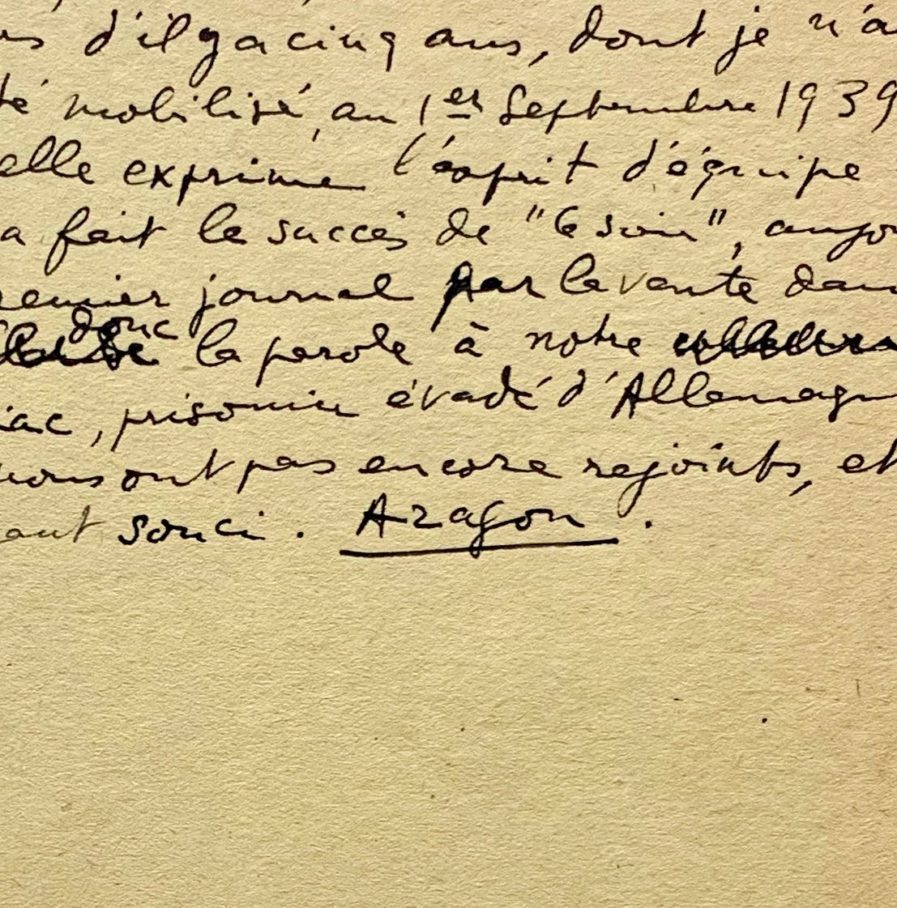 d'il y a cinq ans, dont je n'a
té mobilisé, au 1er Septembre 1939
elle exprime l'esprit d'équipe
a fait le succès de "Ce soir", aujo
remier journal par la vente dan
donc la parole à notre
iac, prisonnier évadé d'Allemagn
nous ont pas encore rejoints, et
ant souci. Aragon.